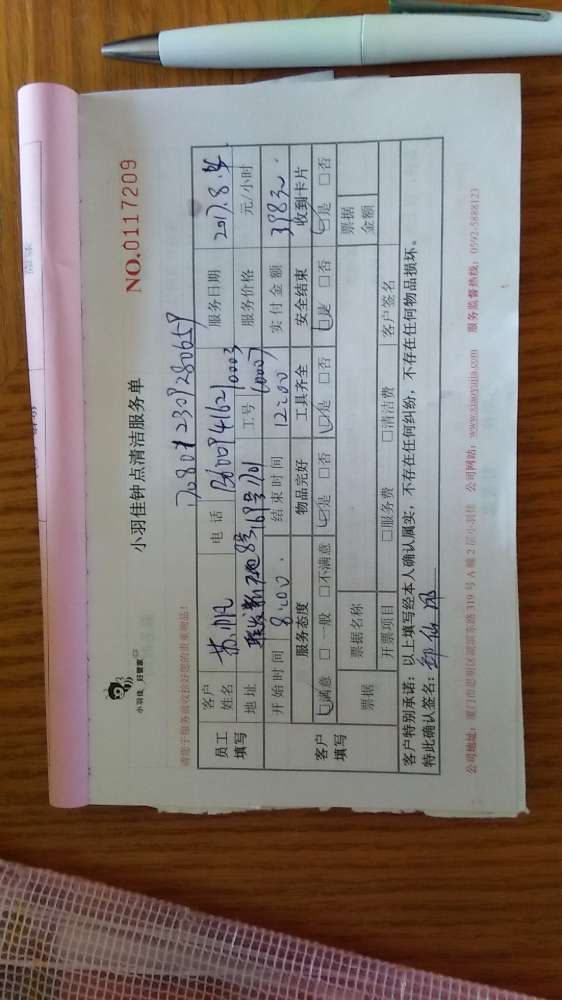 小羽佳 好管家
小羽佳钟点清洁服务单
NO.0117209
请您于服务前收捡好您的贵重物品!
员工填写
客户姓名 苏帆 电话 服务日期
地址 工号 服务价格 元/小时
开始时间 8:00 结束时间 12:00 实付金额 398元
客户填写
服务态度 物品完好 工具齐全 安全结束 收到卡片
□满意 □一般 □不满意 □是 □否 □是 □否 □是 □否 □是 □否
票据 票据名称 票据金额
开票项目 □服务费 □清洁费 客户签名
客户特别承诺：以上填写经本人确认属实，不存在任何纠纷，不存在任何物品损坏。
特此确认签名：
公司地址：厦门市思明区湖滨东路 319 号 A 幢 2 层小羽佳 公司网站：www.xiaoyujia.com 服务监督热线：0592-5888123